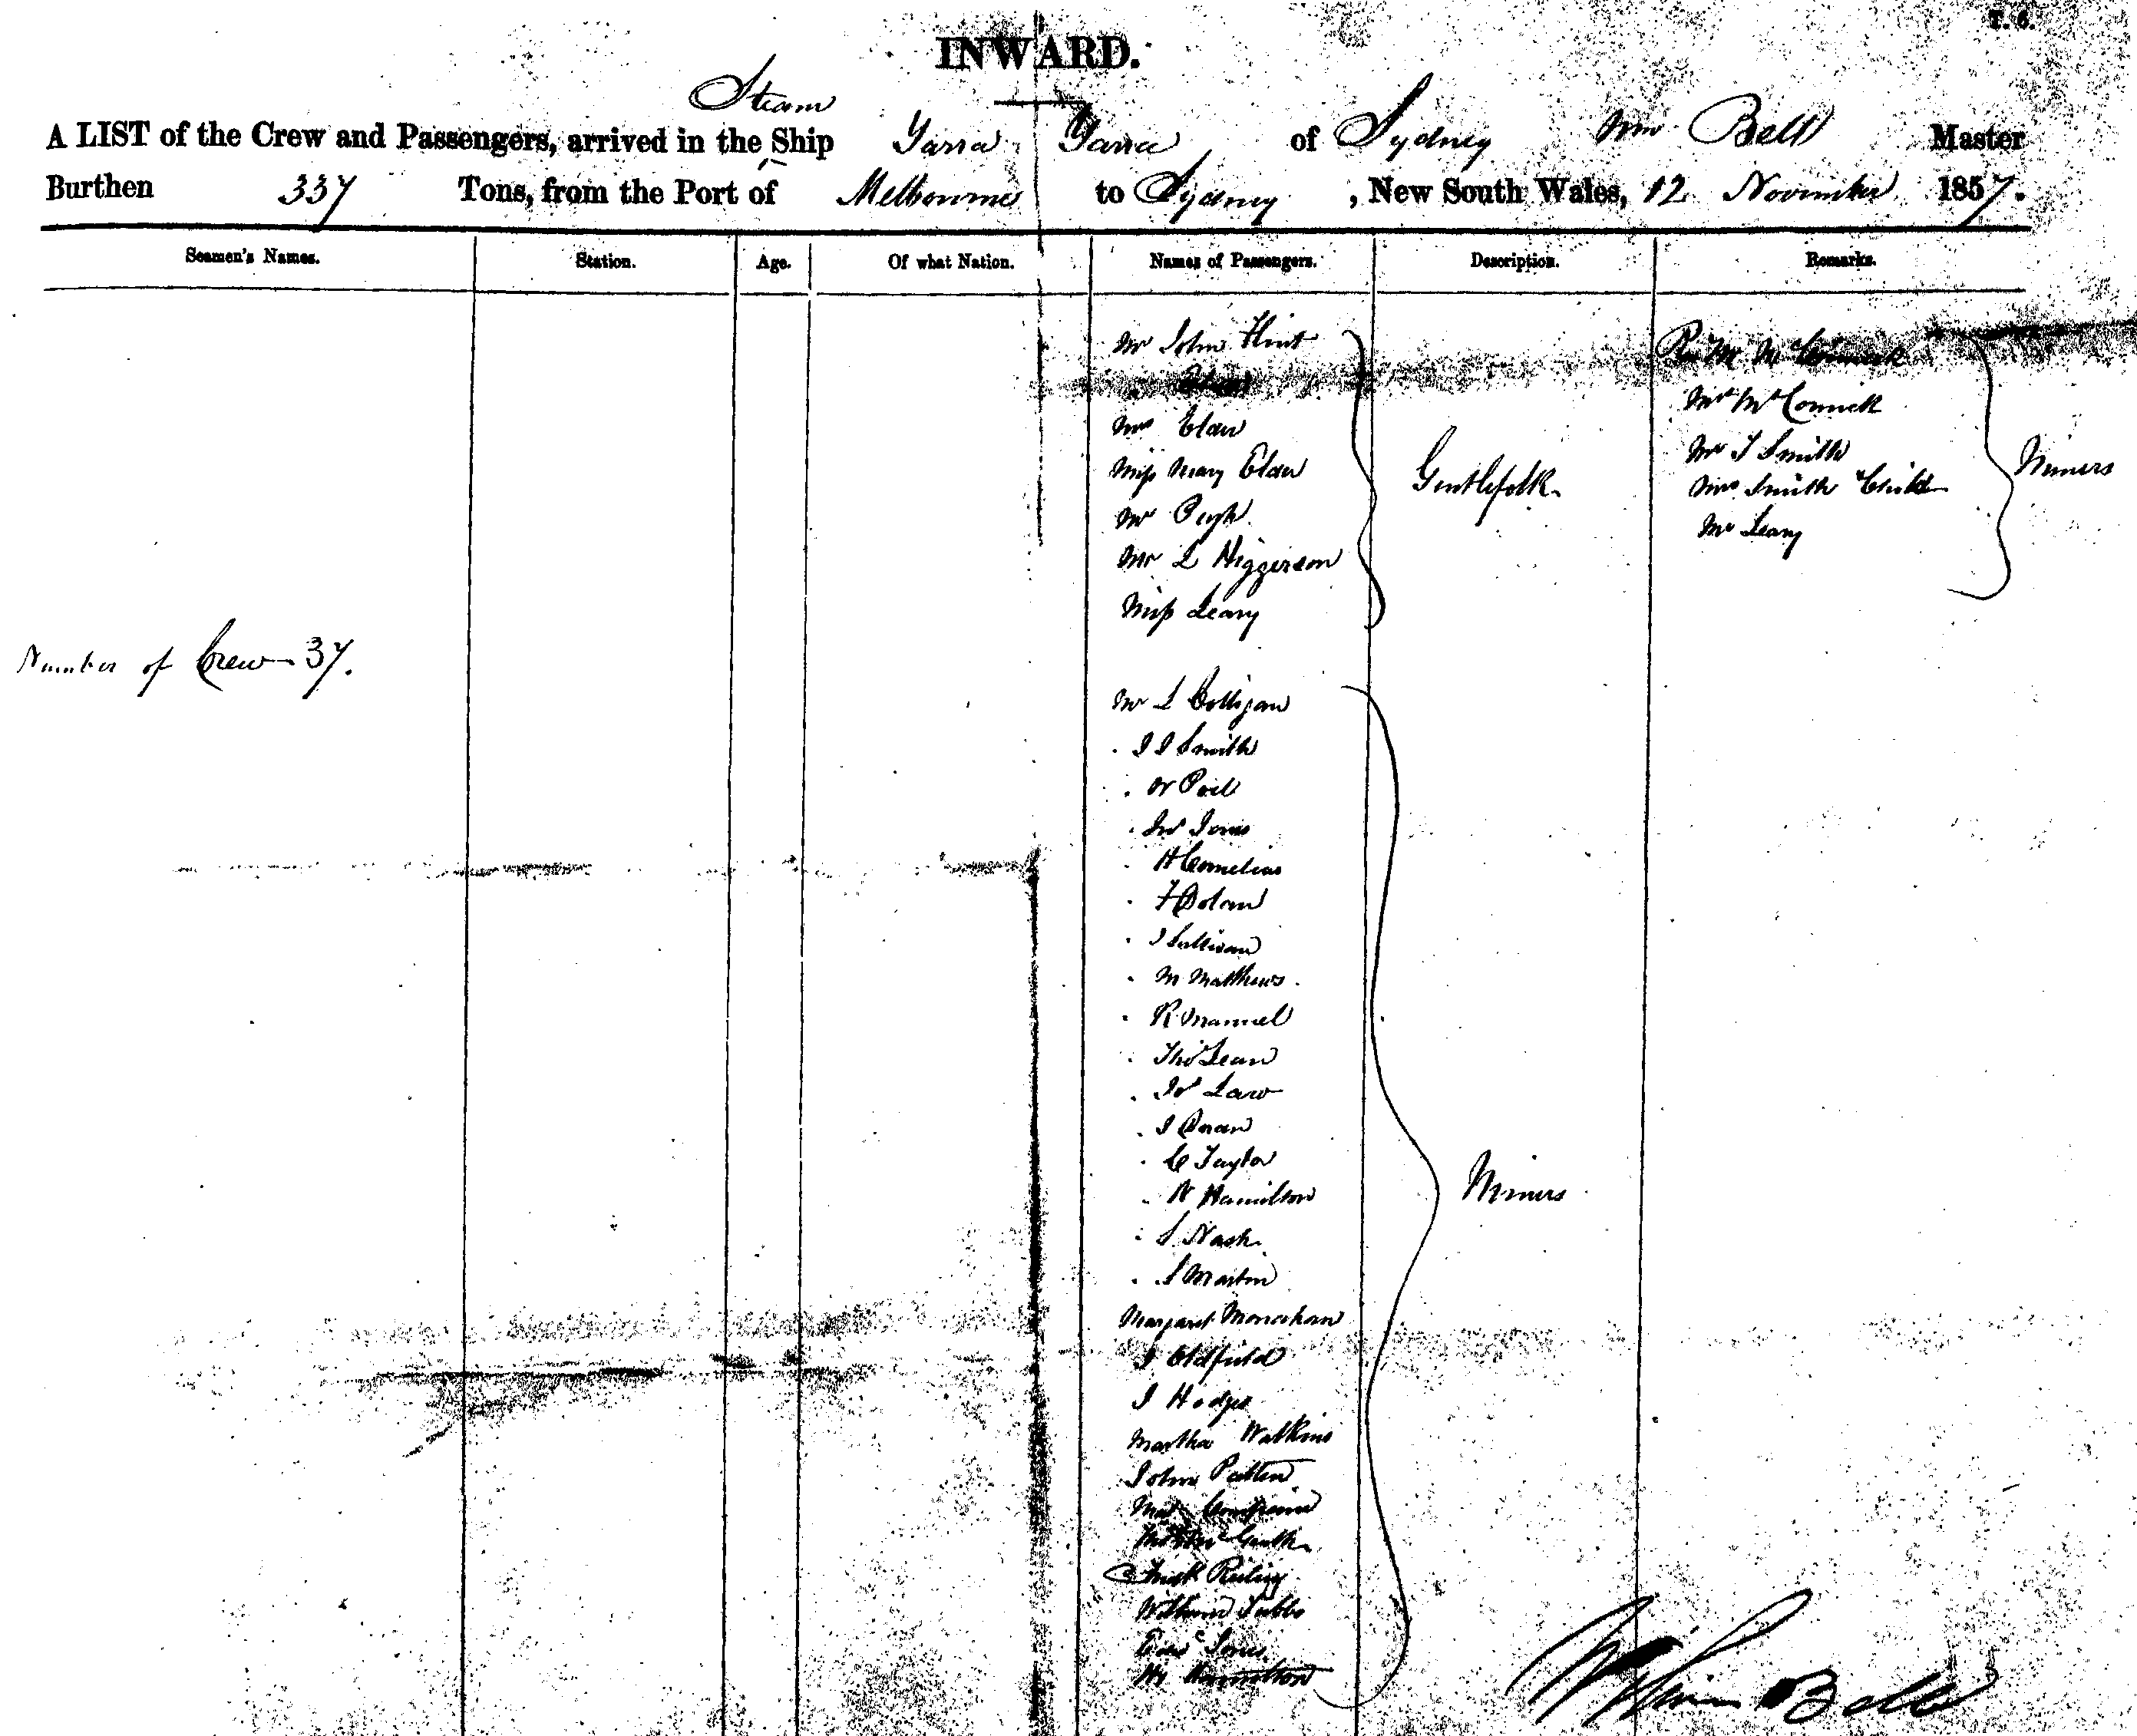 T. 6.
INWARD.
Steam
A LIST of the Crew and Passengers, arrived in the Ship Yarra Yarra of Sydney Wm Bell Master
Burthen 337 Tons, from the Port of Melbourne to Sydney, New South Wales, 12 November 1857.
Seamen's Names. Station. Age. Of what Nation. Names of Passengers. Description. Remarks.
Number of Crew 37.
Mr John Flint
Mrs Elaw
Miss Mary Elaw
Mr Pugh
Mr L Higgerson
Miss Leary
Gentlefolk
Mr L Colligan
" J J Smith
" Jno Jones
" H Cornelius
" F Dolan
" J Sullivan
" M Matthews
" R Manuel
" Thos Lean
" Js Law
" J Doran
" C Taylor
" N Hamilton
" S Nash
" S Martin
Margaret Monoahan
J Oldfield
J Hodges
Martha Watkins
John Patten
William Tubbs
Hy Hamilton
Miners
Revd Mr McCormick
Mrs McCormick
Mr T Smith
Mrs Smith & Child
Mr Leary
Miners
William Bell